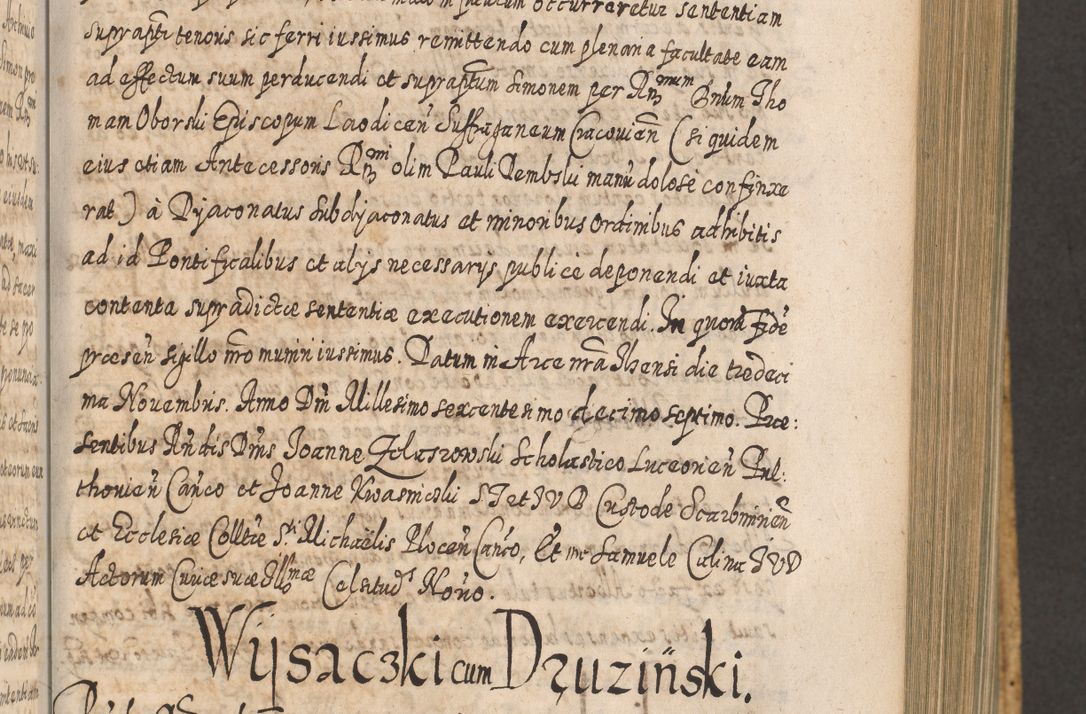 occurreretur sententiam
suprapti tenoris sic ferri iussimus remittendo cum plenaria facultate eam
ad effectum suum perducendi et supraptum Simonem per Rndmum Dnum Tho
mam Oborski Episcopum Laodicen̄ Suffraganeum Cracovien̄ (siquidem
eius etiam Antecessoris Rndmi olim Pauli Dembski manū dolosè confinxe
rat) à Dyaconatus Subdyaconatus et minoribus ordinibus adhibitis
ad id Pontificalibus et alijs necessarijs publicè deponendi et iuxta
contenta supradictæ sententiæ executionem exercendi. In quorū fidē
præsen̄ sigillo nr̄o muniri iussimus. Datum in Arce nr̄a Ilzensi die tredeci
ma Novembris. Anno Dn̄i Millesimo sexcentesimo decimo septimo. Præ:
sentibus Rn̄dis Dn̄is Joanne Zolaszowski Scholastico Luceorien̄ Pul:
thovien̄ Can̄co et Joanne Kwasnicski STetJVD Custode Scarbimirien̄
et Ecclesiæ Colltæ Sti Michaëlis Plocen̄ Can̄co, Et me Samuele Calina JVD
Actorum Curiæ suæ Illmæ Celsitud̄s Nōrio.
Wijsaczski cum Dzuziński.